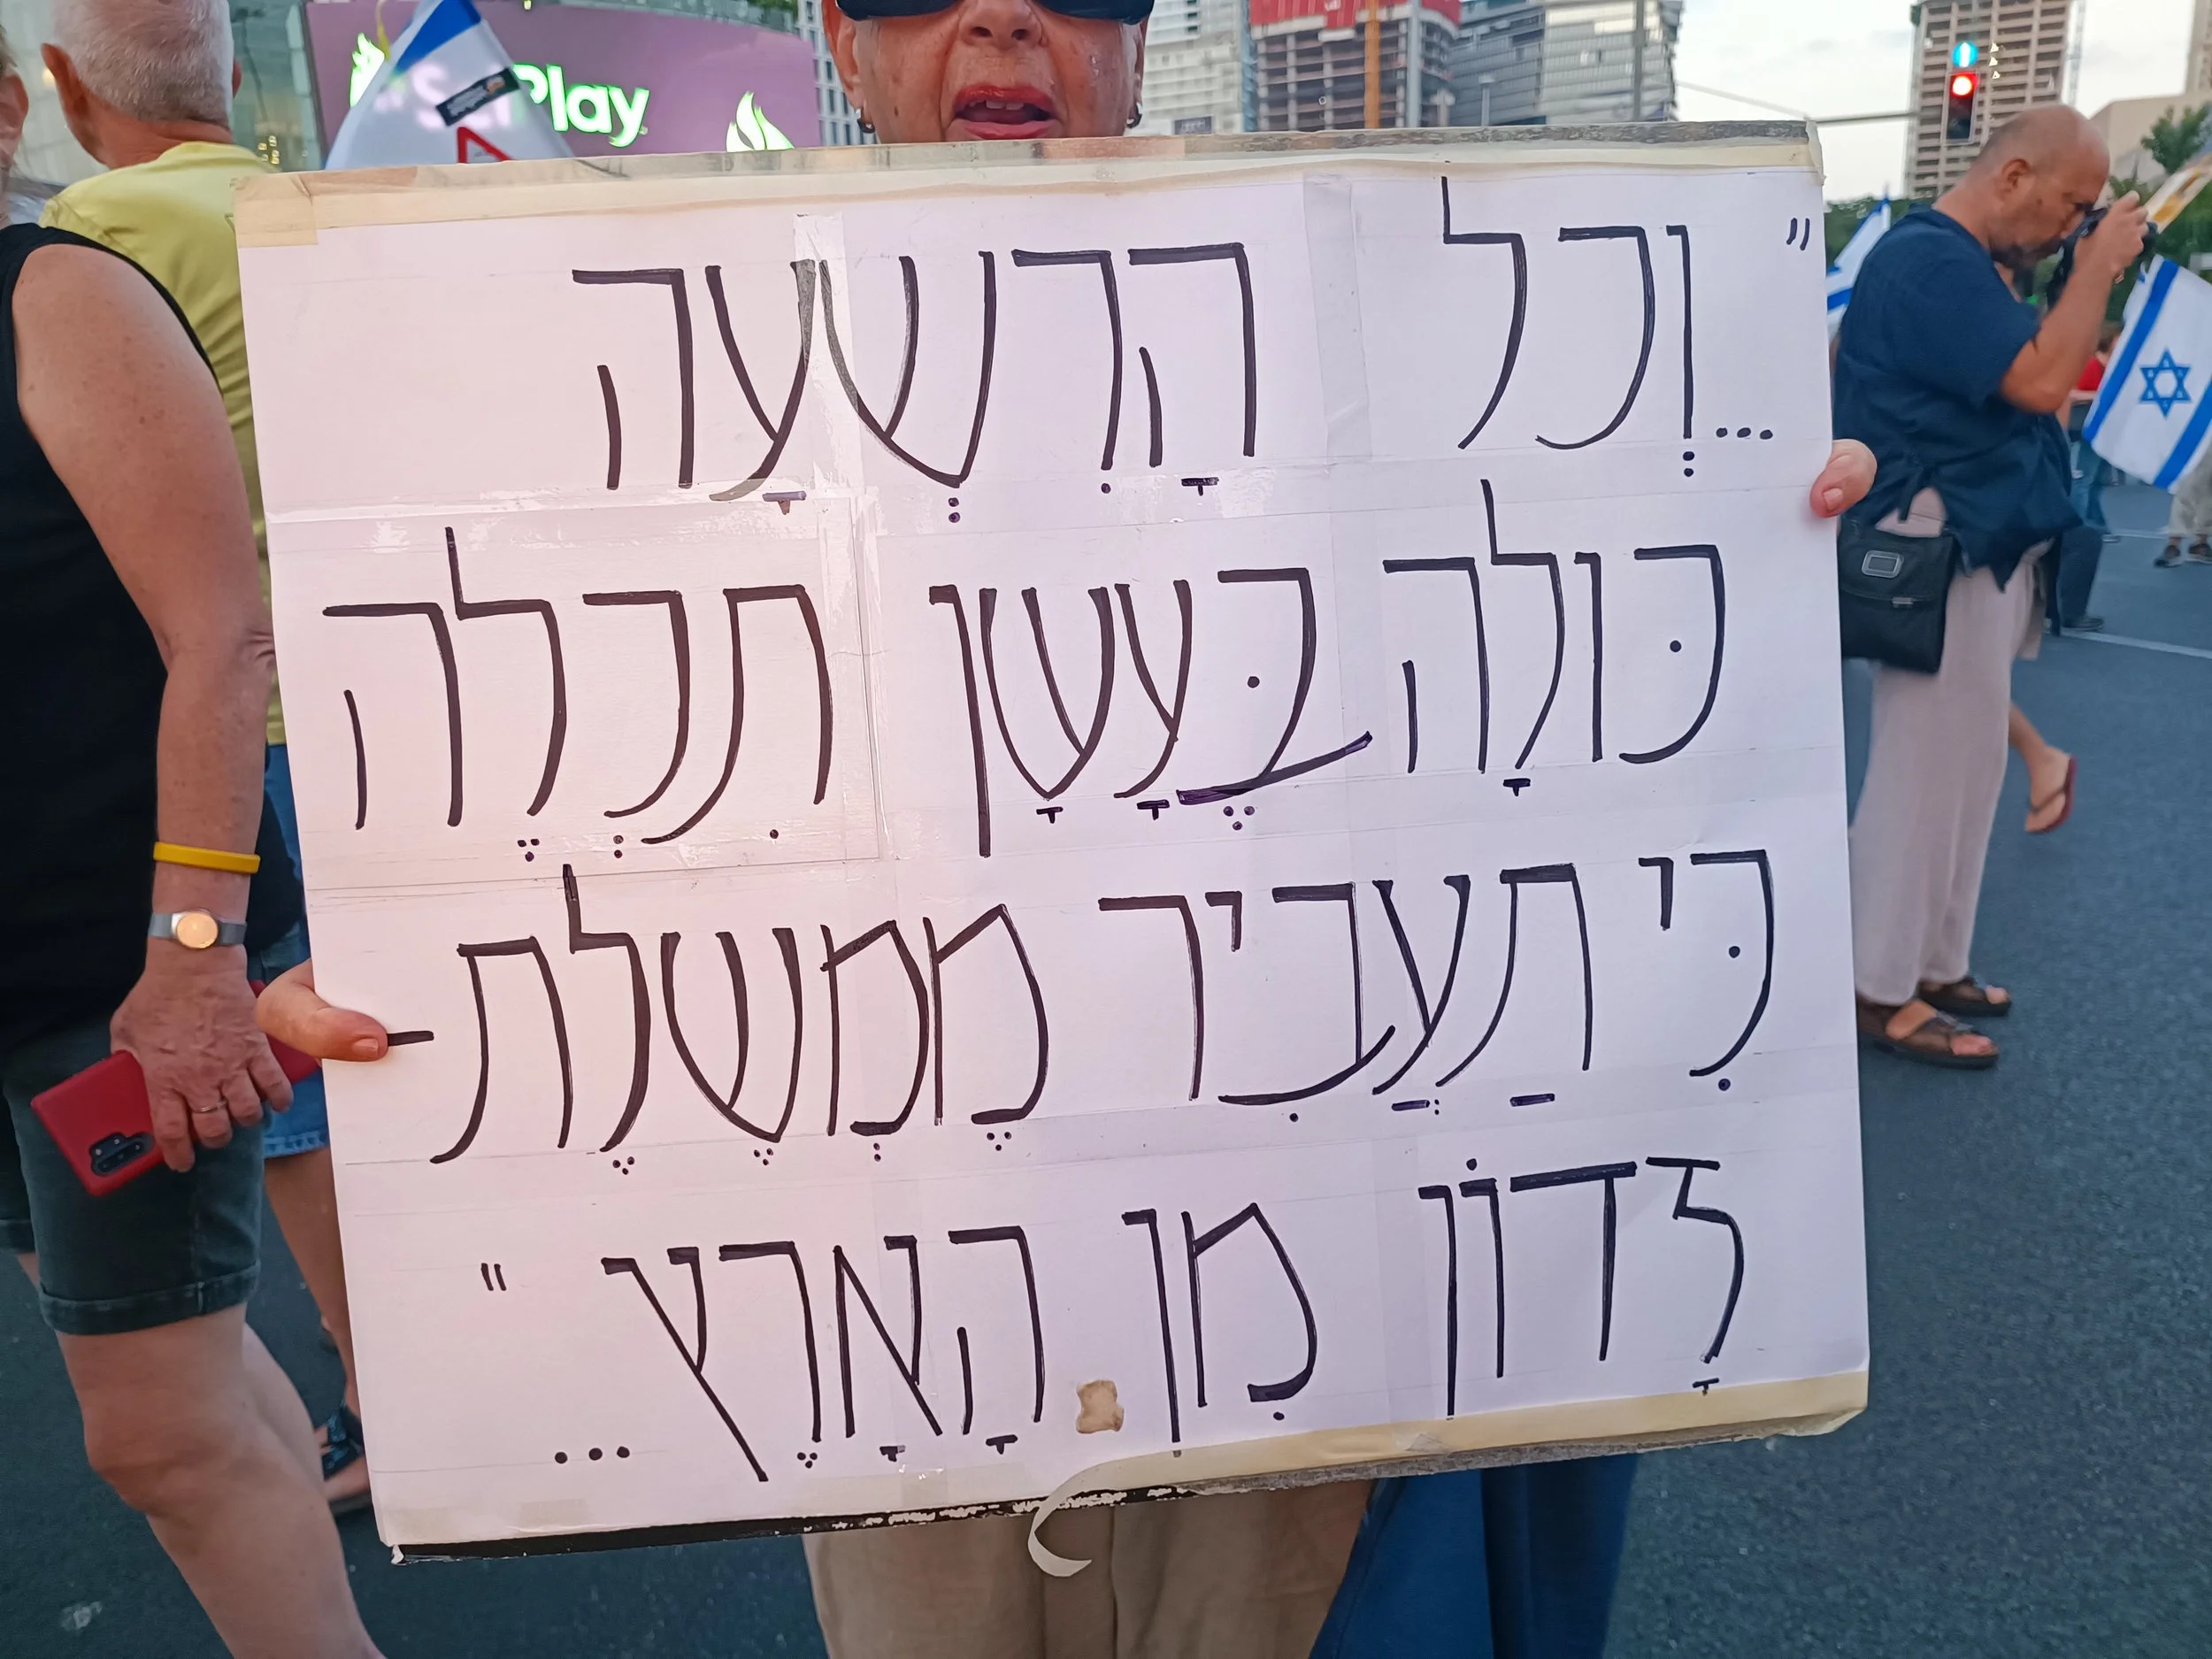 "...וְכל הָרִשְעָה
כּולָה בֶּעָשָן תִכְלֶה
כִּי תַעֲבִיר מֶמְשֶלֶת-
זָדוֹן מִן הָאָרֶץ"...
Play